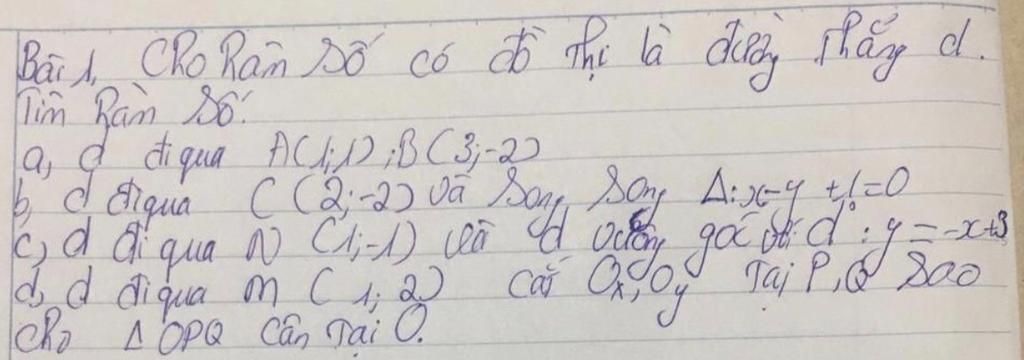 Bài 1, Cho hàm số có đồ thị là đường thẳng d.
Tìm hàm số.
a, d đi qua A(1;1);B(3;-2)
b, d đi qua C(2;-2) và song song Δ:x-y+1=0
c, d đi qua N(1;-1) và d vuông góc với d':y=-x+3
d, d đi qua M(1;2) cắt Ox,Oy tại P,Q sao
cho Δ OPQ cân tại O.